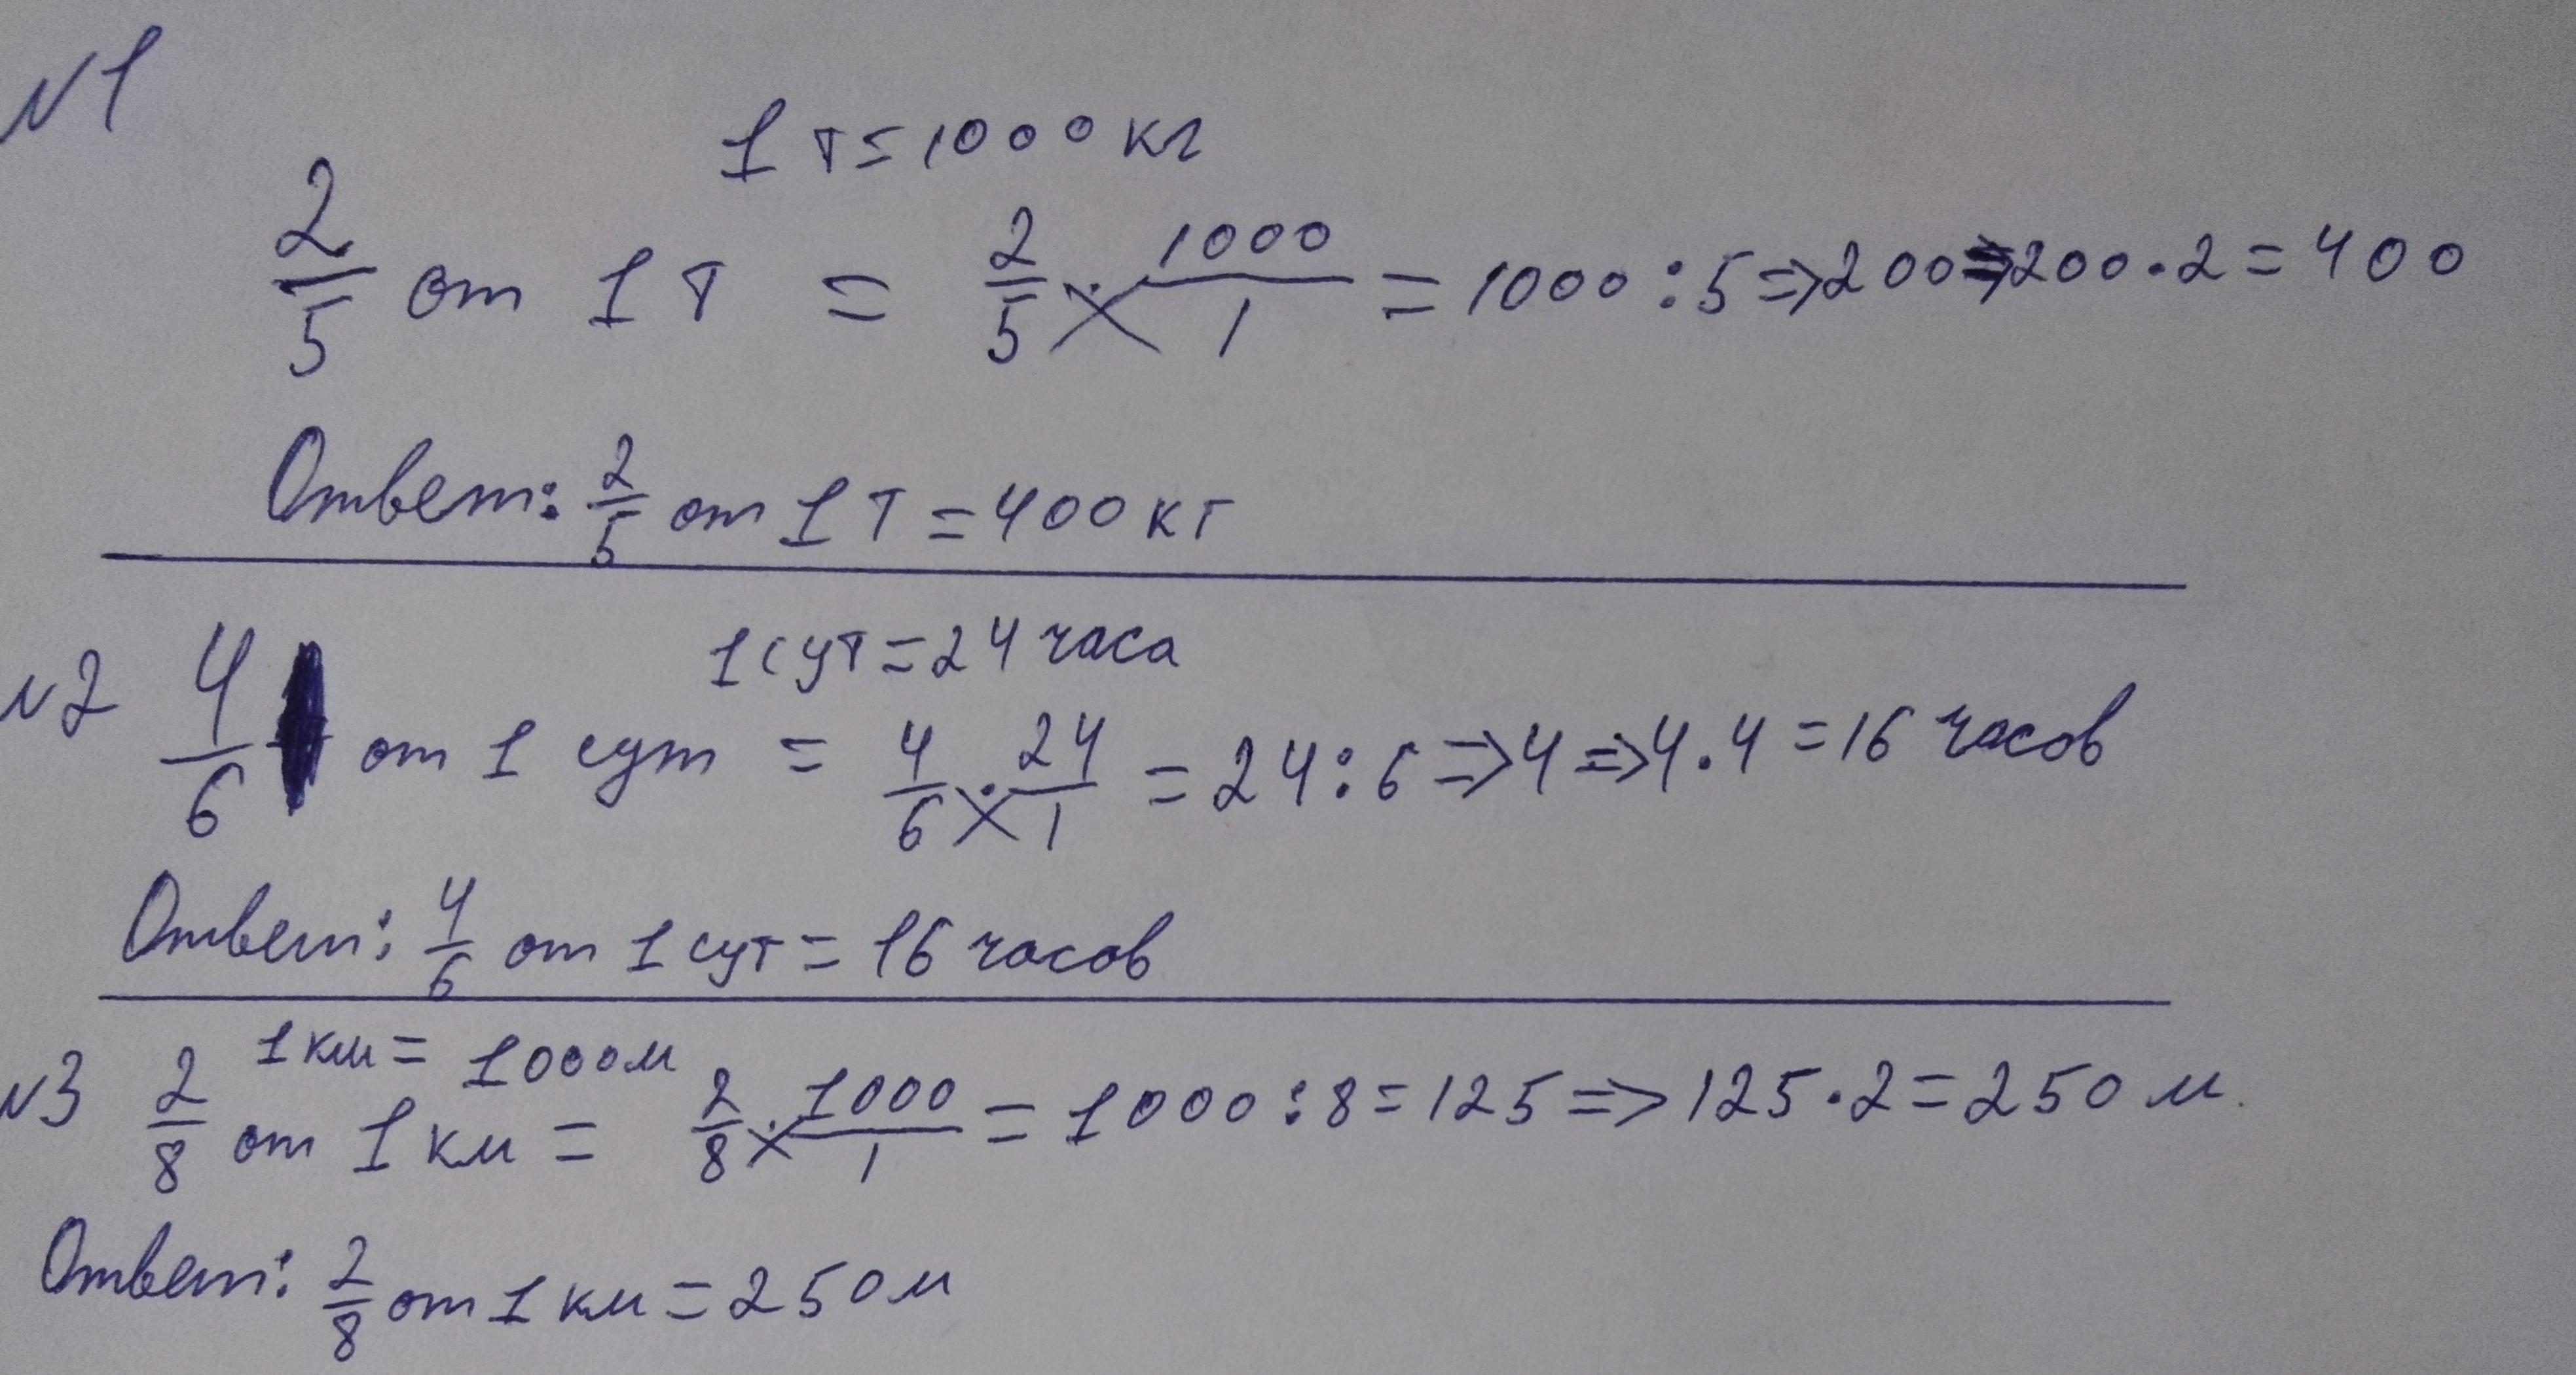 №1
1 т = 1000 кг
2/5 от 1 т = 2/5 · 1000/1 = 1000 : 5 => 200 => 200 · 2 = 400
Ответ: 2/5 от 1 т = 400 кг
1 сут = 24 часа
№2 4/6 от 1 сут = 4/6 · 24/1 = 24 : 6 => 4 => 4 · 4 = 16 часов
Ответ: 4/6 от 1 сут = 16 часов
1 км = 1000 м
№3 2/8 от 1 км = 2/8 · 1000/1 = 1000 : 8 = 125 => 125 · 2 = 250 м.
Ответ: 2/8 от 1 км = 250 м